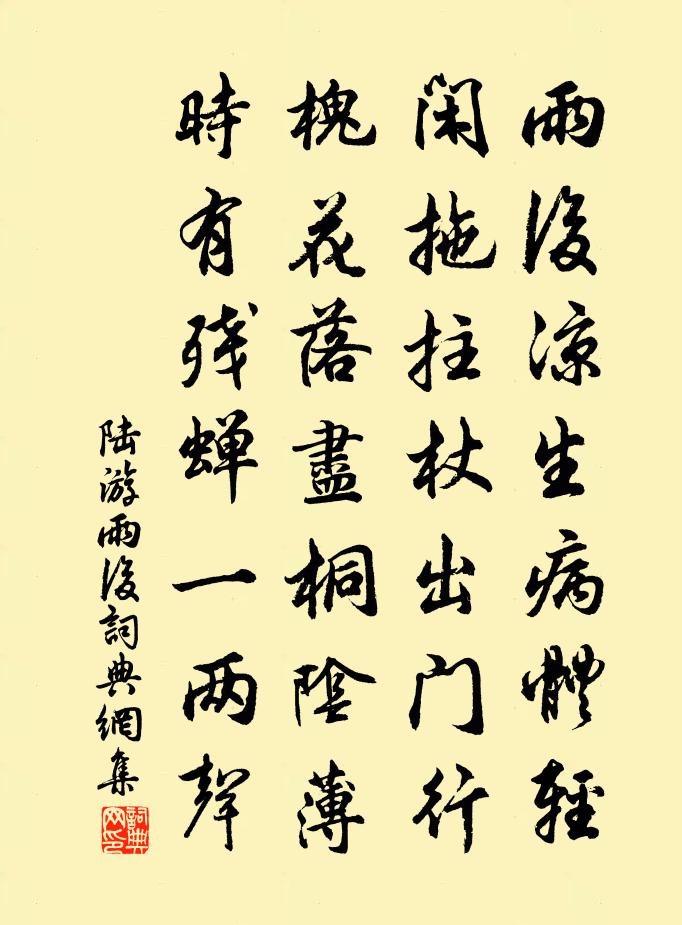 雨後涼生病體輕
閑拖拄杖出門行
槐花落盡桐陰薄
時有殘蟬一两聲
陆游雨後詞典網集
詞典網印